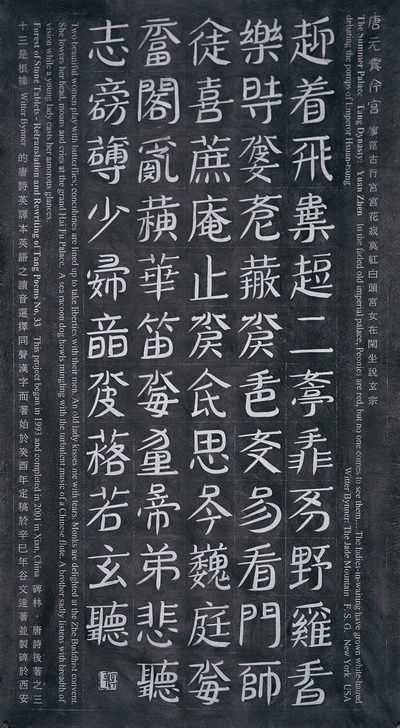 唐元稹行宮 寥落古行宮 宮花寂寞紅 白頭宮女在 閑坐說玄宗
The Summer Palace Tang Dynasty: Yuan Zhen In the faded old imperial palace, Peonies are red, but no one comes to see them.... The ladies-in-waiting have grown white-haired
debating the pomps of Emperor Hsuan-tsung Witter Bynner: The Jade Mountain F. S. G. New York USA
着飛二葶野羅
樂時婆老癸看門師
喜蔗庵止癸思岑巍庭
閣亂華笛童帝弟悲聽
志謗少婦音若玄聽
Two beautiful women play with butterflies; concubines are lined up to take liberties with their men. An old lady kisses me with tears. Monks are delighted at the Zhe Buddhist convent.
She lowers her head, moans and cries at the grand Hai Fu Palace. A sea racoon dog howls mingling with the turbulent music of a Chinese flute. A brother sadly listens with breadth of
vision while a young lady casts her amorous glances.
Forest of Stone Tablets - Retranslation and Rewriting of Tang Poems No. 33 This project began in 1993 and completed in 2001 in Xian, China 碑林，唐詩後著之三
十三是根據 Witter Bynner 的唐詩英譯本英語之讀音選擇同聲漢字而著始於癸酉年定稿於辛巳年谷文達著並製碑於西安